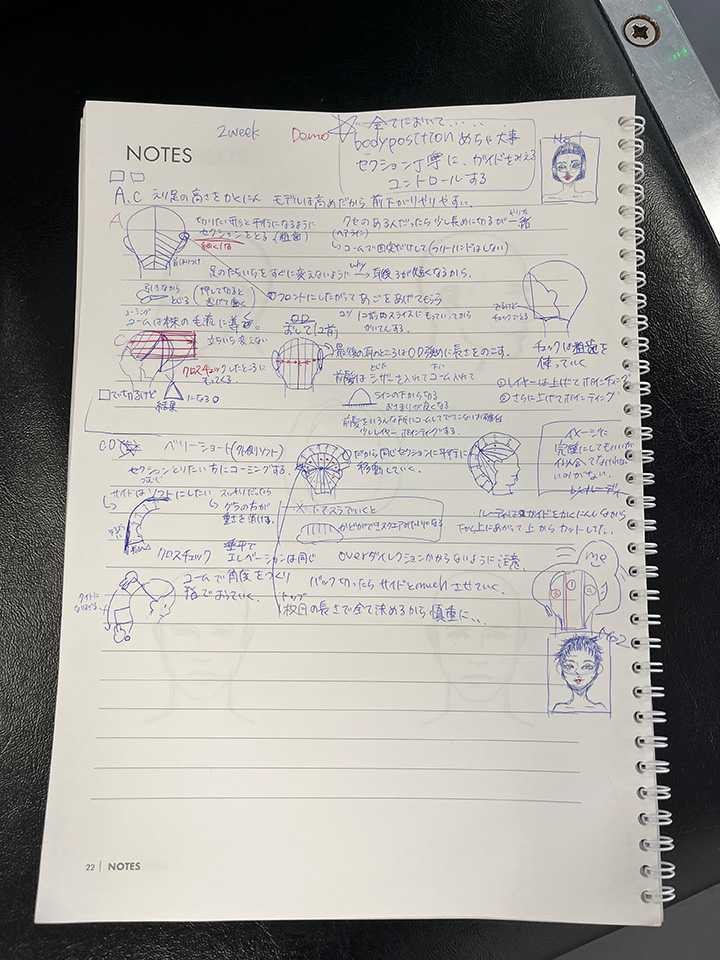 2week
Demo
全てにおいて.....
bodyposition めちゃ大事
セクション丁寧に、ガイドをみえる
コントロールする
NOTES
No1
A.C えり足の高さをかくにん モデルは高めだから前下がりやりやすい。
A
切りたい所と平行になるように
セクションをとる(粗歯)
細くする
クセのある人だったら少し長めに切るが一緒
(ヘアライン)
コームで固定だけして(タイトハンドはしない)
足のたちいちをすぐに変えないように why → 耳後ろが短くなるから。
引きながら
とじる
(押して切ると
逃げて働く
フロントにしたがってあごをあげてもらう
コーミング
コームは株の毛流に導く。
OD
おして1コ前
コツ 1コ前のスライスにもっていってから
かいてんする。
C
立ちいち変えない
クロスチェックしたところに
もってくる。
最後の耳のところはOD強めに長さをのこす。
チェックは粗歯を
使っていく
前髪はシザーを入れてコーム入れて
①レイヤーは上げてポインティング
②さらに上げてポインティング
□で切るけど
結果
になる
ラインの下から切る
おさまりが良くなる
前髪をいろんな所にコームしてでてこない場合
少しレイヤーポインティングする。
ベリーショート
セクションとりたい方にコーミングする。
つむじ
だから同じセクションに平行に
移動していく。
イメージに
完璧にしてもいいが
似合ってなければ
いみがない。
サイドはソフトにしたい
スッキリだったら
グラの方が
重さを演ける
かどができスクエアみたいになる
ガイドをかくにんしながら
下から上にあがって上からカットしてた。
クロスチェック
垂平で
エレベーションは同じ
overダイレクションかからないように注意、
me
③
①
②
コームで角度をつくり
指でおっていく、
バック切ったらサイドとmuchさせていく、
トップ
1枚目の長さで全て決めるから慎重に、、
No2
22 | NOTES